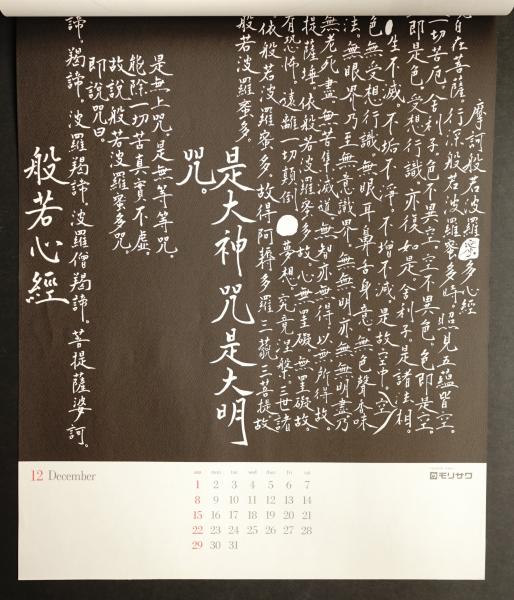 摩訶般若波羅蜜多心經
自在菩薩。行深般若波羅蜜多時。照見五蘊皆空。
一切苦厄。舍利子色不異空。空不異色。色即是空。
即是色。受想行識。亦復如是。舍利子。是諸法相。
生不滅。不垢不淨。不增不減是故空中。空
色無受想行識。無眼耳鼻舌身意。無色聲香味
法。無眼界乃至無意識界。無無明亦無無明盡乃
無老死盡。無苦集滅道。無智亦無得。以無所得故。
提薩埵。依般若波羅蜜多故。心無罣礙。無罣礙故。
有恐怖。遠離一切顛倒夢想。究竟涅槃。三世諸
依般若波羅蜜多。故得阿耨多羅三藐三菩提故
般若波羅蜜多。
是大神咒是大明
咒。
是無上咒。是無等等咒。
能除一切苦真實不虛。
故說般若波羅蜜多咒。
即說咒曰。
諦。羯諦。波羅羯諦。波羅僧羯諦。菩提薩婆訶。
般若心經
12 December
sun mon tue wed thu fri sat
1 2 3 4 5 6 7
8 9 10 11 12 13 14
15 16 17 18 19 20 21
22 23 24 25 26 27 28
29 30 31
モリサワ